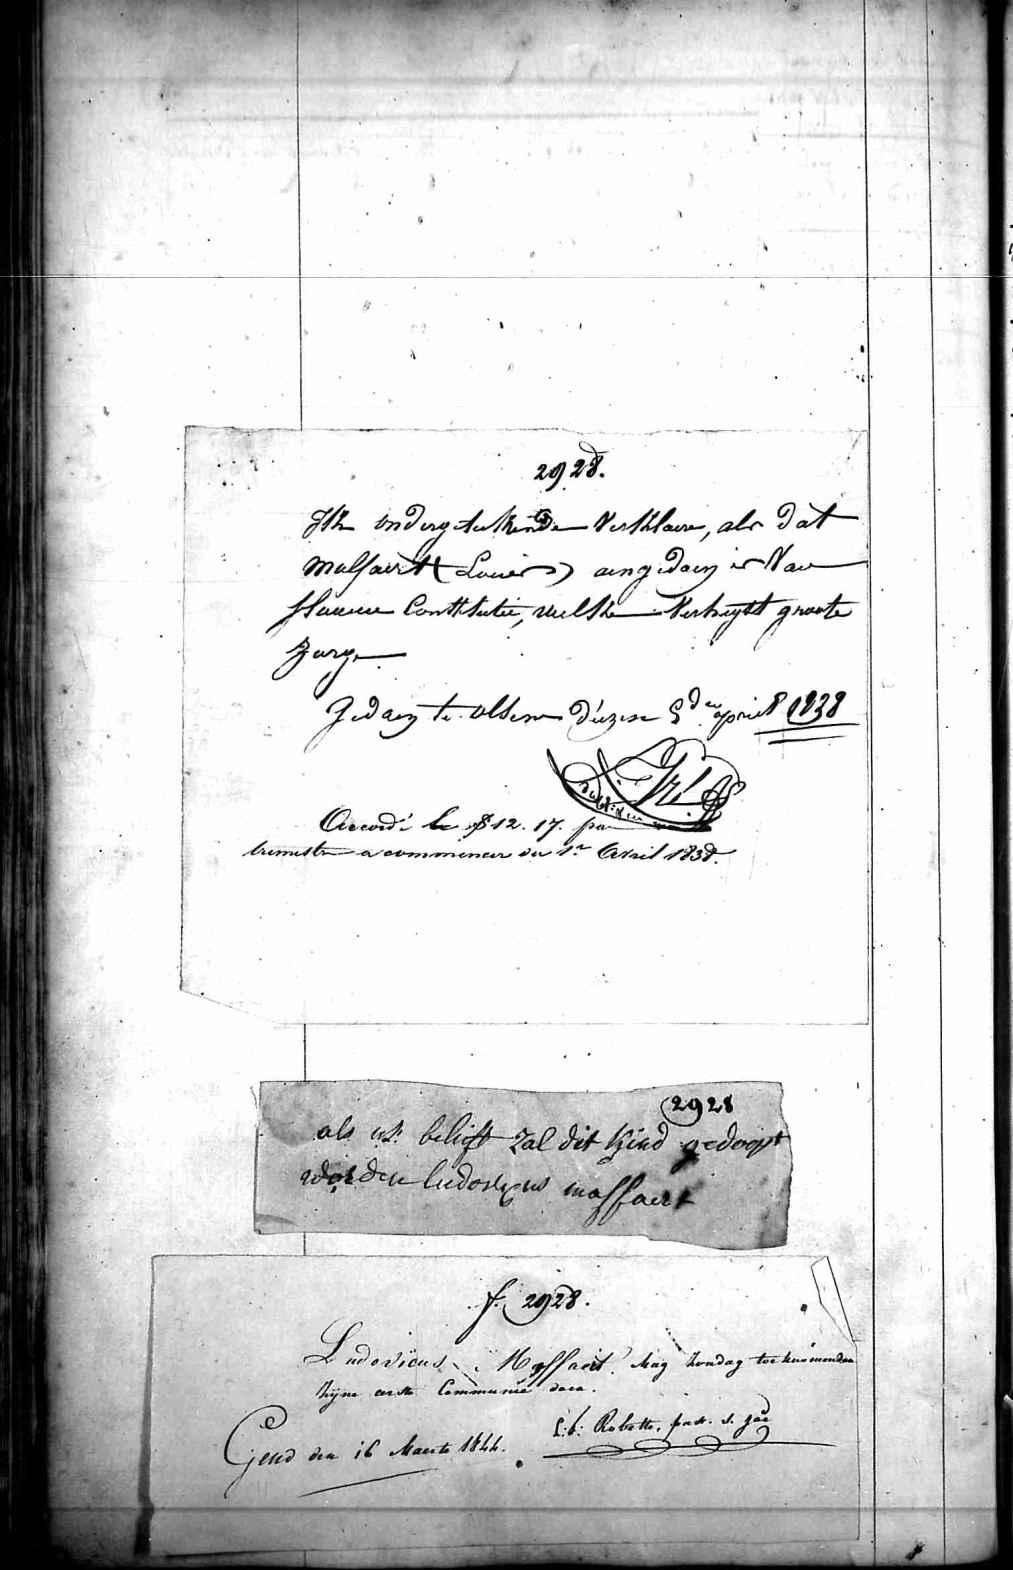 2928.
Ik ondergeteekende Verklaere, als dat
Malfaert (Louis) aengedaen is Van
flauwe Constitutie, welke Vereyscht groote
Zorge
Gedaen te Olsene dezen 5den april 1838
Accordé le 12. 17. par
trimestre a commencer du 1er Avril 1838.
2928
als ul: belieft zal dit kind gedoopt
worden ludovicus maffaert
f. 2928.
Ludovicus Maffaert Mag Zondag toekomenden
Zyne eerste Communie doen.
Gend den 16 Maerte 1844.
past. s.